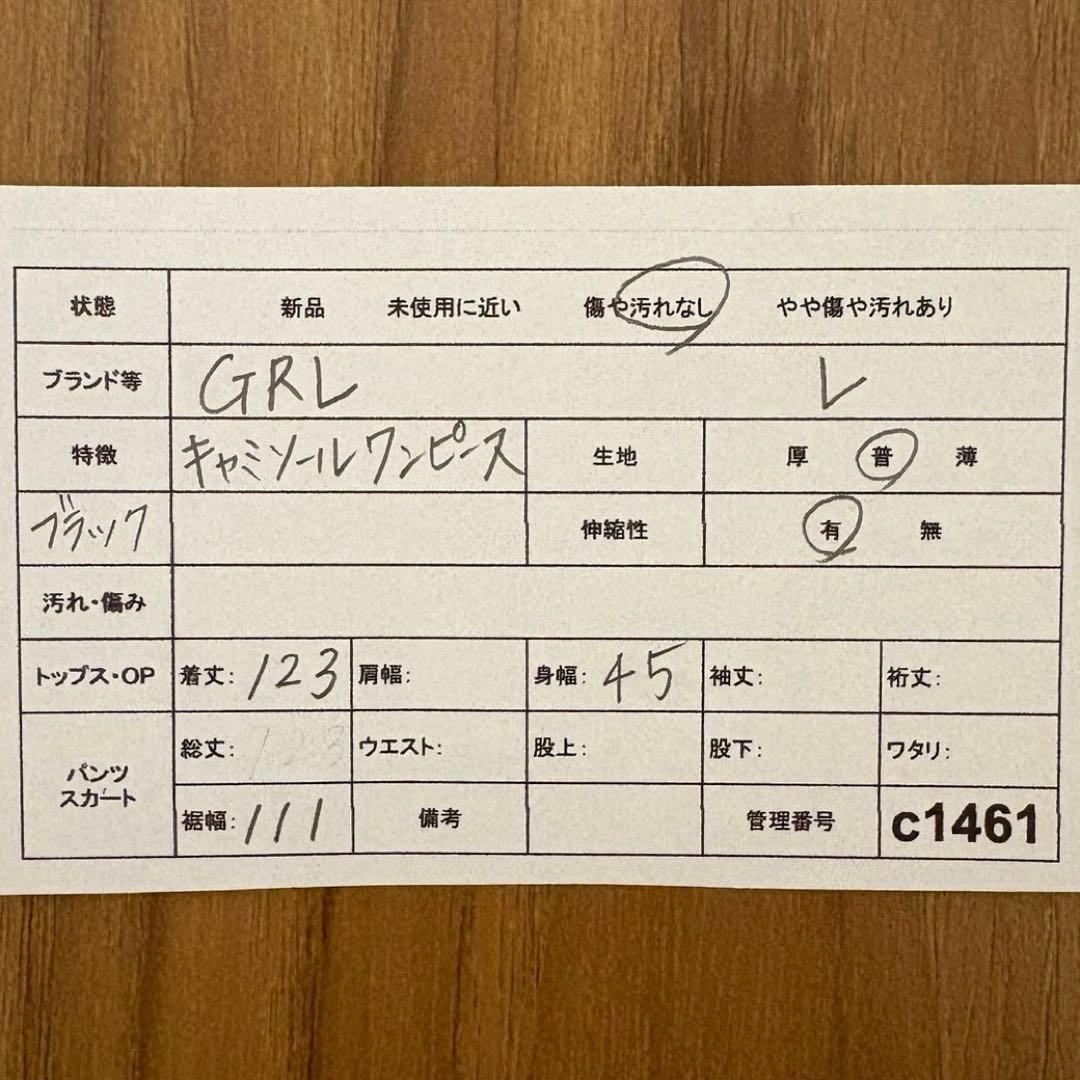 状態 新品 未使用に近い 傷や汚れなし やや傷や汚れあり
ブランド等 GRL L
特徴 キャミソールワンピース 生地 厚 普 薄
ブラック 伸縮性 有 無
汚れ・傷み
トップス・OP 着丈: 123 肩幅: 身幅: 45 袖丈: 裄丈:
パンツ
スカート
総丈: 123 ウエスト: 股上: 股下: ワタリ:
裾幅: 111 備考 管理番号 c1461